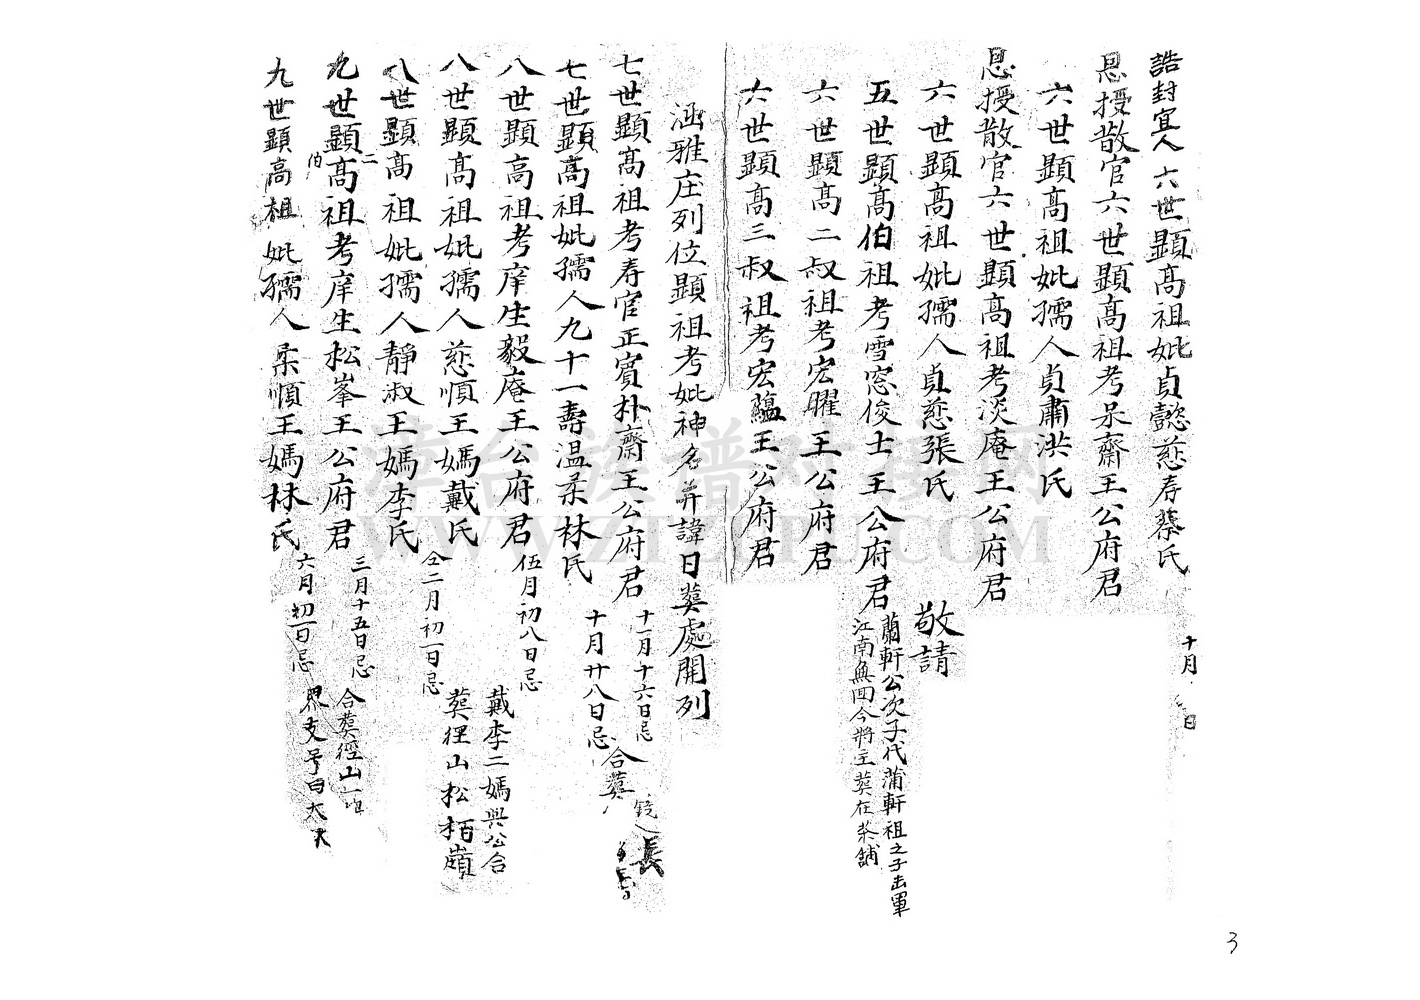 誥封宜人六世顯高祖妣貞懿慈寿蔡氏 十月 日
恩授散官六世顯高祖考呆齋王公府君
六世顯高祖妣孺人貞肅洪氏
恩授散官六世顯高祖考淡庵王公府君
六世顯高祖妣孺人貞慈張氏 敬請
五世顯高伯祖考雪窓俊士王公府君
蘭軒公次子代蒲軒祖之子出軍
江南無回今將主葬在茶舖
六世顯高二叔祖考宏曜王公府君
六世顯高三叔祖考宏蘊王公府君
涵雅庄列位顯祖考妣神名并諱日葬處開列
七世顯高祖考寿官正賓朴齋王公府君 十一月十六日忌
七世顯高祖妣孺人九十一壽温柔林氏 十月廿八日忌 合葬 長
八世顯高祖考庠生毅庵王公府君 伍月初八日忌
戴李二媽與公合
葬狸山松栢嶺
八世顯高祖妣孺人慈順王媽戴氏 仝二月初一日忌
八世顯高祖妣孺人靜淑王媽李氏
九世顯二伯高祖考庠生松峯王公府君 三月十五日忌 合葬徑山
九世顯高祖妣孺人柔順王媽林氏 六月初一日忌
漳台族谱对接网
WWW.ZTZUPU.COM
3